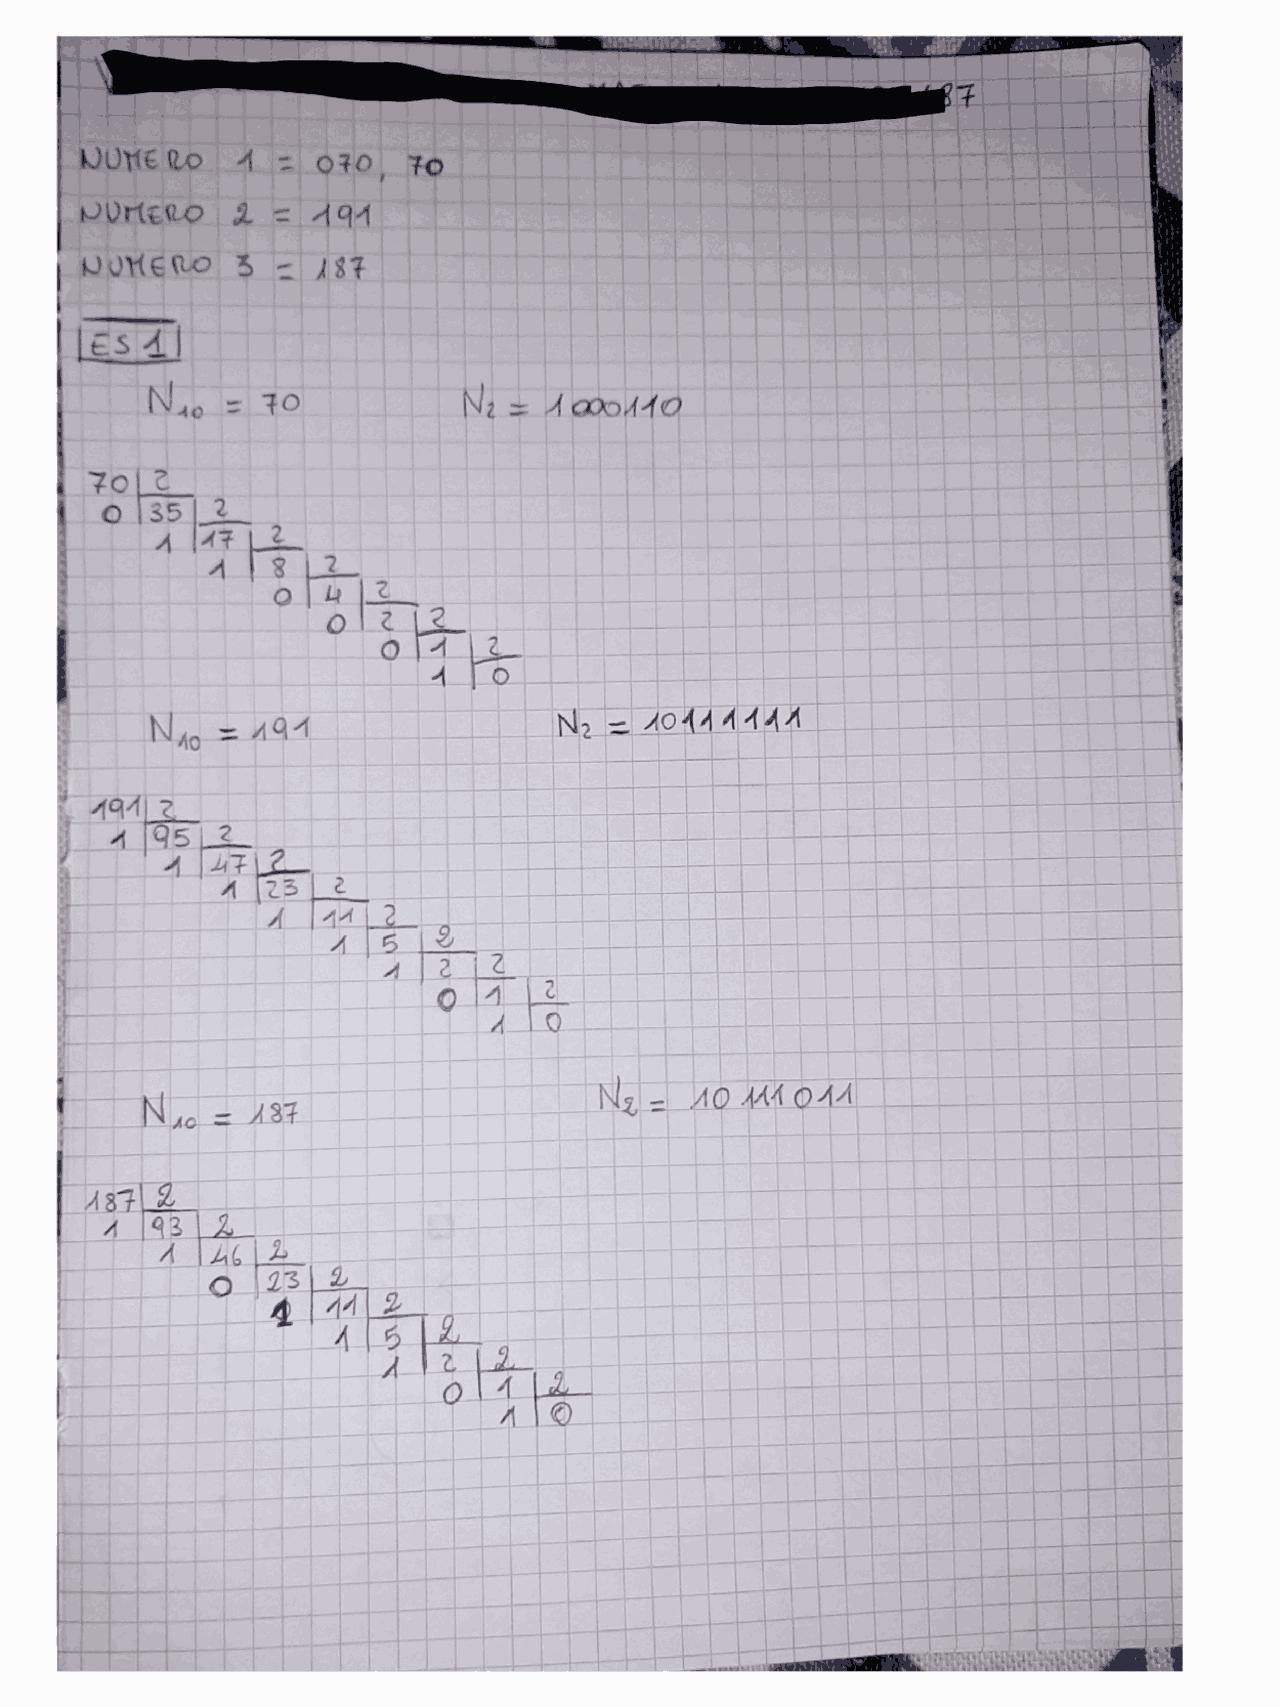 87
NUMERO 1 = 070, 70
NUMERO 2 = 191
NUMERO 3 = 187
ES 1
N10 = 70 N2 = 1000110
70 2
0 35 2
1 17 2
1 8 2
0 4 2
0 2 2
0 1 2
1 0
N10 = 191 N2 = 10111111
191 2
1 95 2
1 47 2
1 23 2
1 11 2
1 5 2
1 2 2
0 1 2
1 0
N10 = 187 N2 = 10111011
187 2
1 93 2
1 46 2
0 23 2
1 11 2
1 5 2
1 2 2
0 1 2
1 0